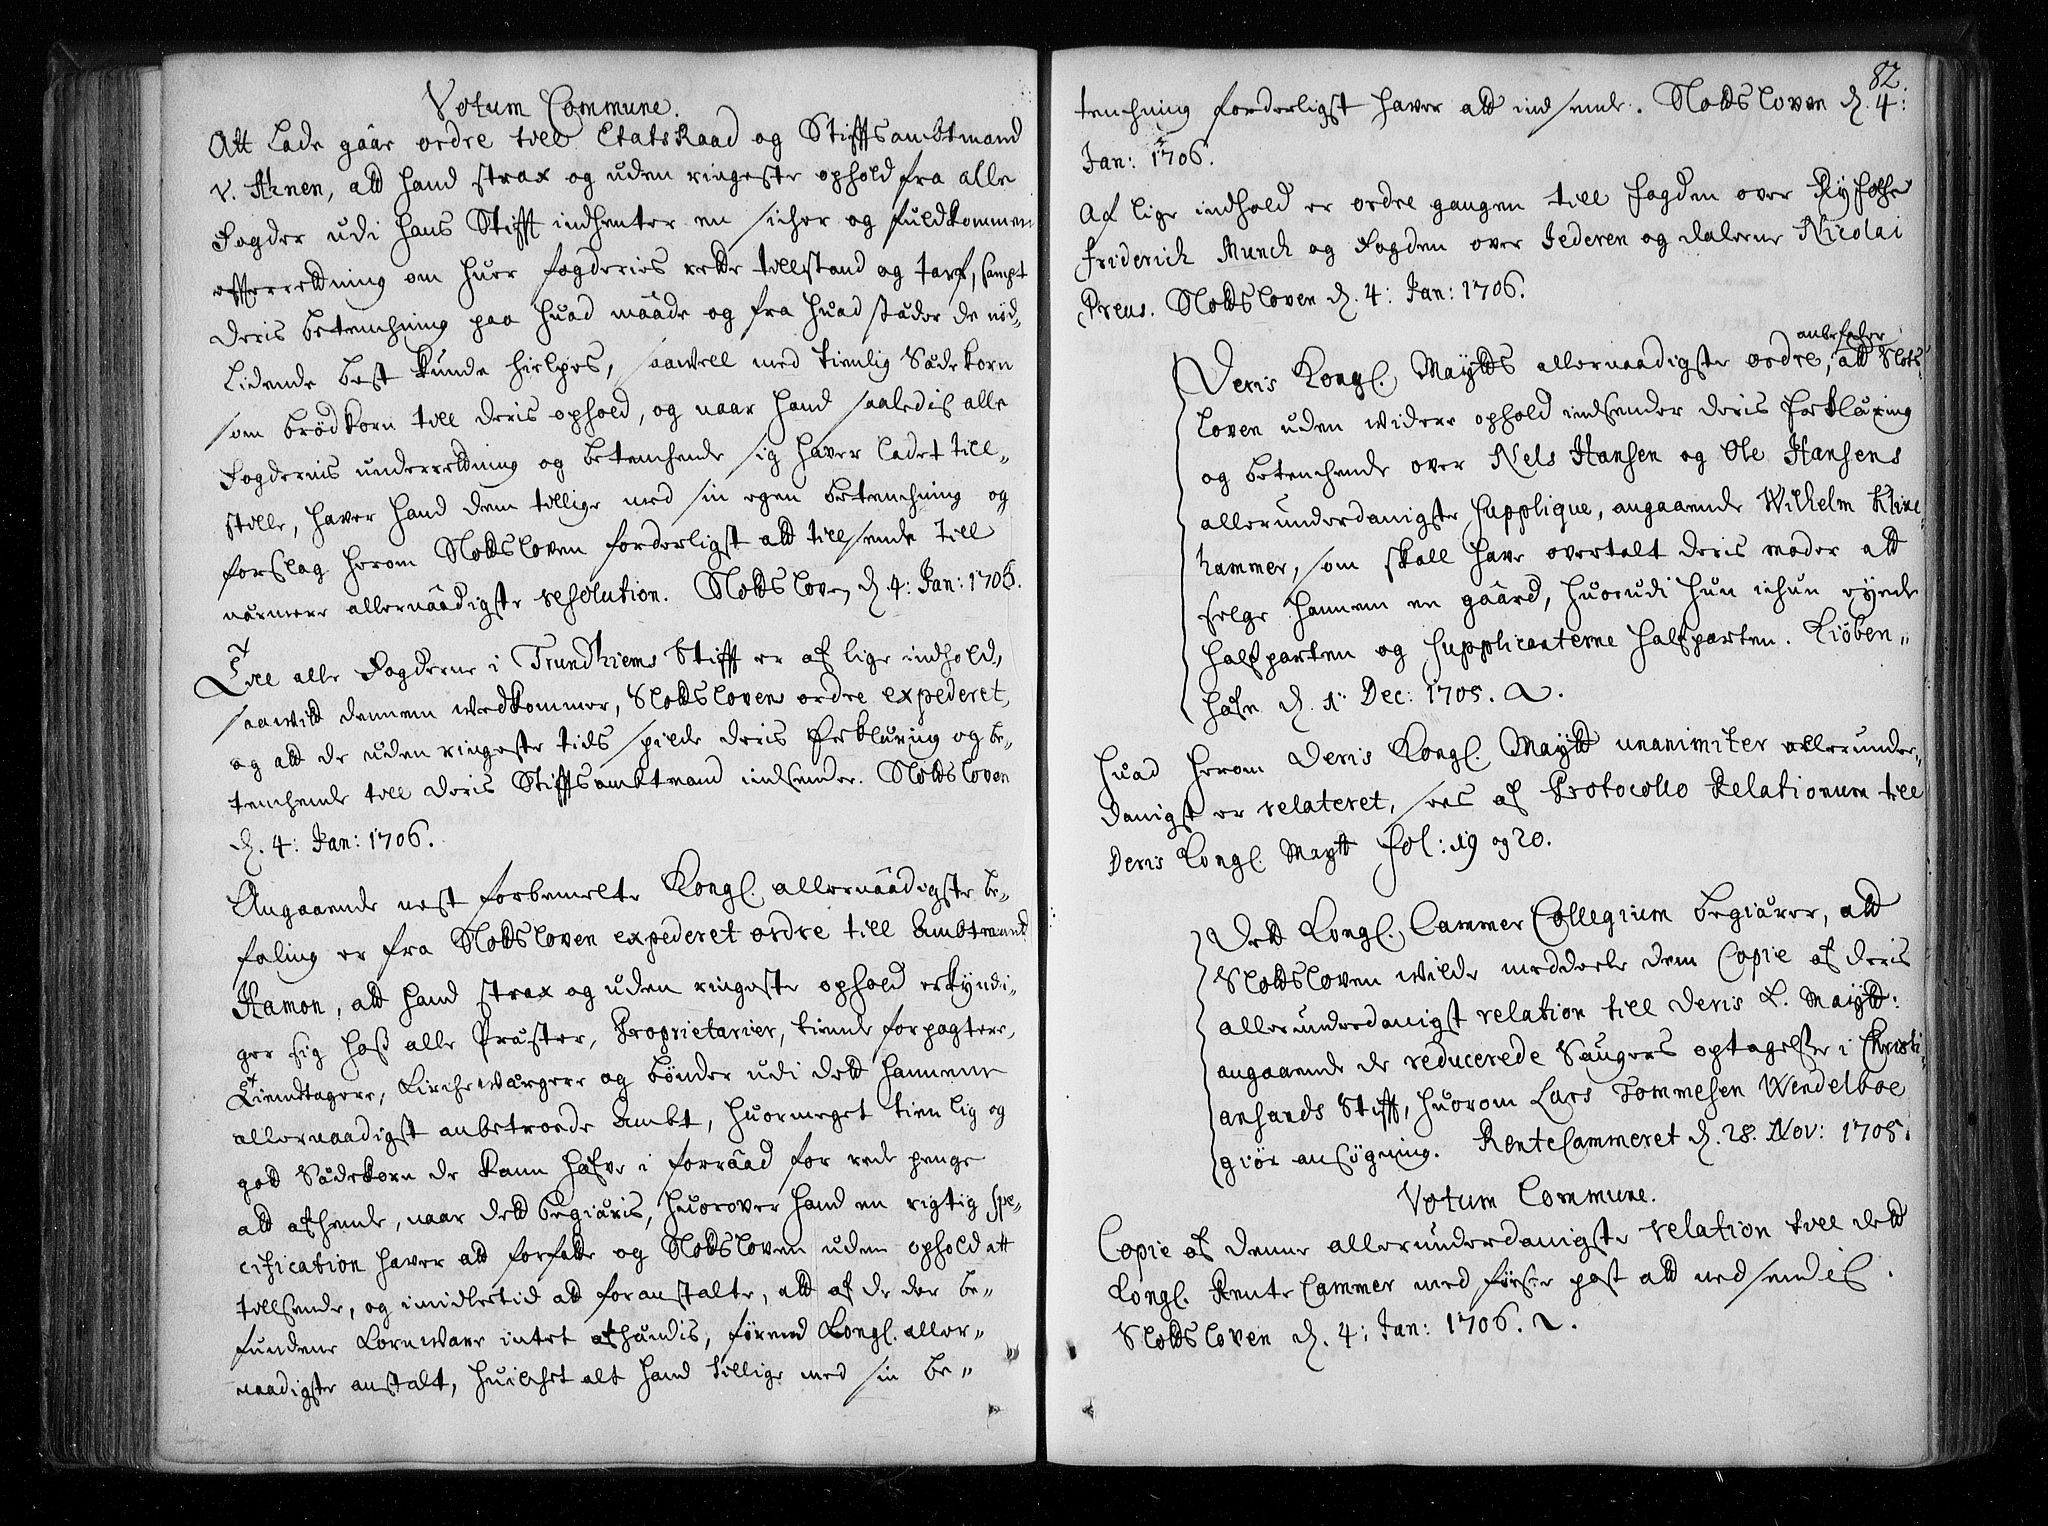 Votum Commune.
Att lade gåår ordre till Etats Raad og Stiffts ambtmand
v. Ahnen, att hand strax og uden ringeste ophold fra alle
Fogder udi hans Stifft indhenter en sicher og fuldkommen
efterrettning om huer fogderies rette tillstand og tarf, sampt
deris betenchning paa huad måade og fra huad stæder de nød-
lidende best kunde hielpes, saawell med tienlig Sædekorn
som brødkorn till deris ophold, og naar hand saaledis alle
Fogdernis underrettning og betenchende sig haver ladet till-
stille, haver hand dem tillige med sin egen betenchning og
forslag herom Slottsloven forderligst att tillsende till
nærmere allernåadigste resolution. Slottsloven d. 4: Jan: 1706.
Till alle Fogderne i Trundhiems Stifft er af lige indhold,
saawitt dennem wedkommer, Slottsloven ordre expederet,
og att de uden ringeste tids spilde deris Erklæring og be-
tenchende till deris Stifftsambtmand indsender. Slottsloven
d. 4: Jan: 1706.
Angaaende nest forbemelte Kongl. allernåadigste be-
faling er fra Slottsloven expederet ordre till Ambtmand
Hamon, att hand strax og uden ringeste ophold erkyndi-
ger sig hoss alle Præster, Proprietarier, tiende forpagtere,
Tiendtagere, Kirchewærgere og bønder udi dett hannem
allernaadigst anbetroede Ambt, huormeget tienlig og
god Sædekorn de kann hafve i forråad for rede penge
att afhende, naar dett begiæris, huorover hand en rigtig spe-
cification haver att forfatte og Slottsloven uden ophold att
tillsende, og imidlertid att foranstalte, att af de der be-
fundene Kornware intet afhændis, førend Kongl. aller-
naadigste anstalt, huilchet alt hand tillige med sin be-
82.
tenchning forderligst haver att indsende. Slottsloven d. 4:
Jan: 1706.
Af lige indhold er ordre gangen till fogden over Ryfolche
Friderich Munch og Fogden over Jederen og dalerne Nicolai
Preus. Slottsloven d. 4: Jan: 1706.
anbefaler
Deris Kongl. Maytts allernaadigste ordre, att Slots-
loven uden widere ophold indsender deris Erklæring
og betenchende over Nels Hansen og Ole Hansens
allerunderdanigste Supplique, angaaende Wilhelm Kline-
hammer, som skall have overtalt deris moder att
selge hannem en gåard, huorudi hun ichun eyede
halfparten og Supplicanterne halfparten. Kiøben-
hafn d. 1. Dec: 1705.
huad herom Deris Kongl. Maytt unanimiter allerunder-
danigst er relateret, sees af Protocollo Relationum till
Deris Kongl. Maytt fol: 19 og 20.
Dett Kongl. Cammer Collegium begiærer, att
Slottsloven wilde meddeele dem Copie af deris
allerunderdanigst relation till Deris K. Maytt:
angaaende de reducerede Saugers optagelse i Christi-
ansands Stifft, huorom Lars Tommesen Wendelboe
giør ansøgning. RenteCammeret d. 28. Nov: 1705.
Votum Commune.
Copie af denne allerunderdanigste relation till dett
Kongl. Rente Cammer med første post att nedsendis.
Slottsloven d. 4: Jan: 1706.